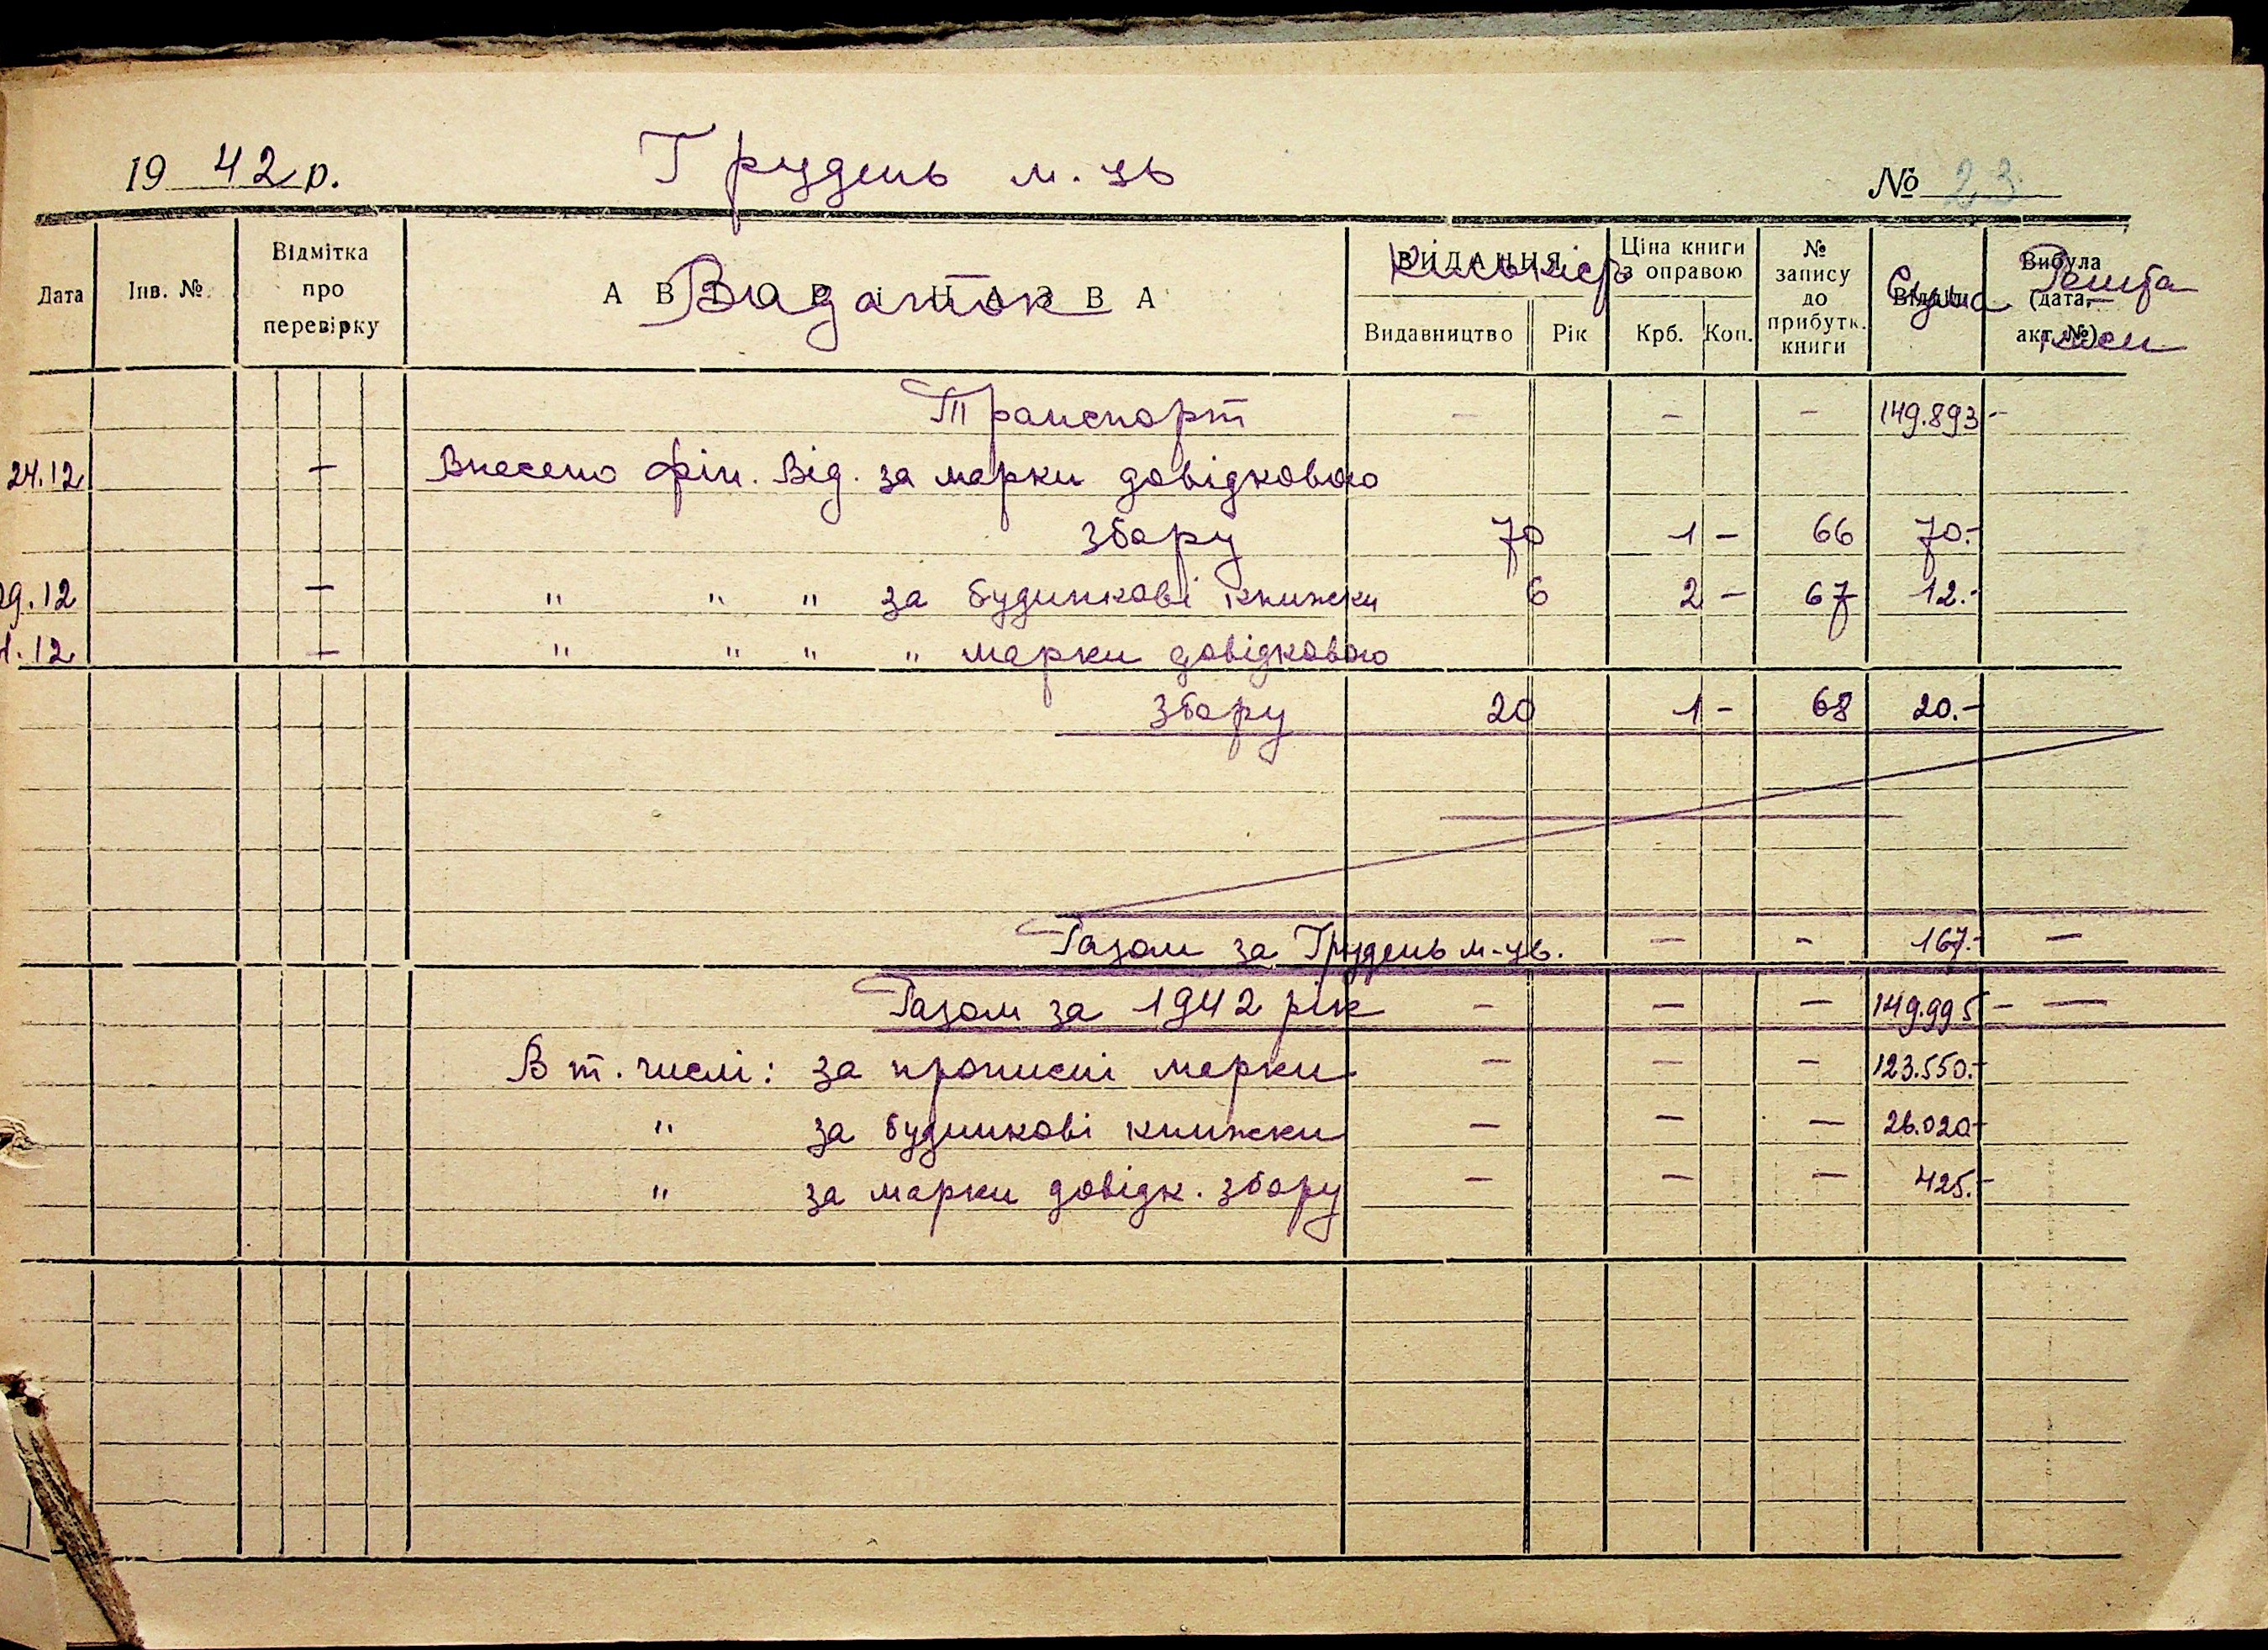 19 42 р. Грудень м-ць № 23
Дата Інв. № Відмітка про перевірку АВТОР І НАЗВА ВИДАННЯ Видавництво Рік Ціна книги з оправою Крб. Коп. № запису до прибутк. книги Відділ Вибула (дата, акт №)
Видаток Кількість Сума Решта
Транспорт — — — 149.893 -
24.12 — Внесено фін. Від. за марки довідкового
збору 70 1 - 66 70.-
29.12 — " " " за будинкові книжки 6 2 - 67 12.-
1.12 — " " " " марки довідкового
збору 20 1 - 68 20.-
Разом за Грудень м-ць. — - 167.- —
Разом за 1942 рік - — — 149.995 - —
В т. числі: за прописні марки — — — 123.550.-
" за будинкові книжки — — — 26.020-
" за марки довідк. збору — — — 425.-